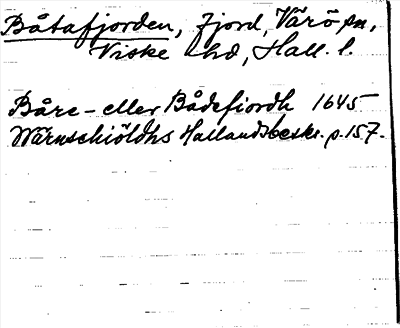 Båtafjorden, fjord, Värö sn,
Viske hd, Hall. l.
Båre- eller Bådefiordh 1645
Wärnschiöldhs Hallandsbeskr. p. 157.